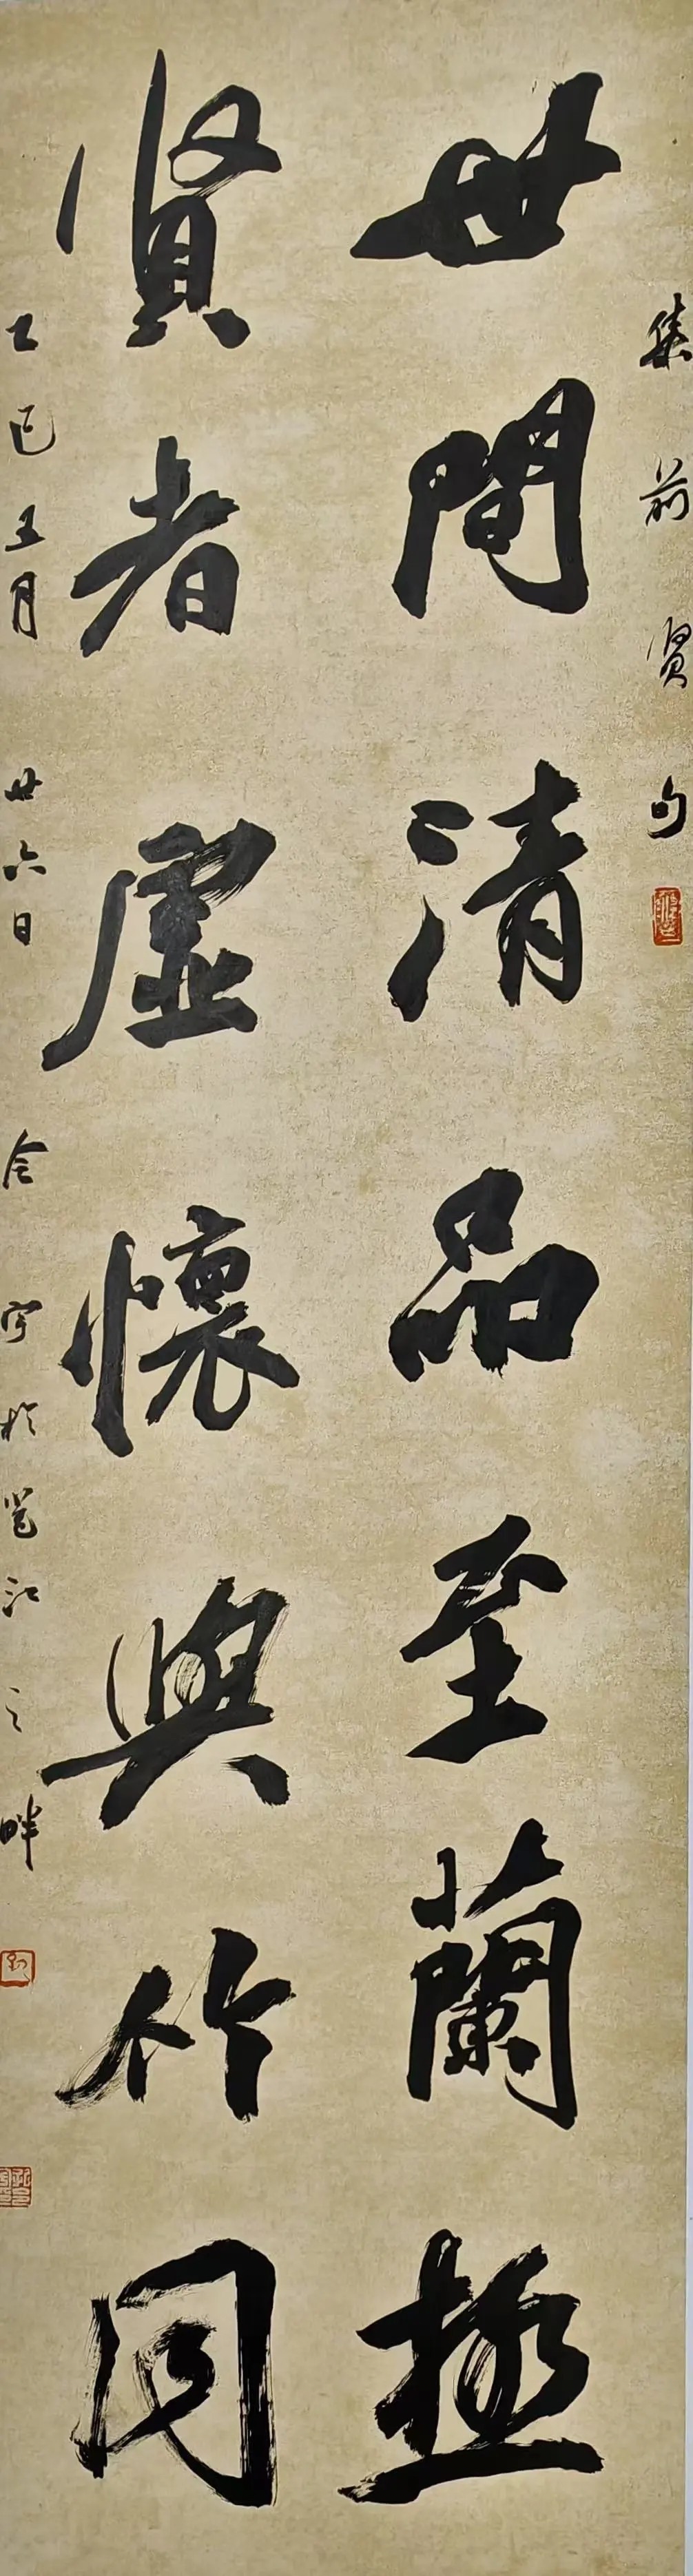 集前贤句
世間清品至蘭極
贤者虛懷與竹同
乙巳五月廿六日 於邕江之畔